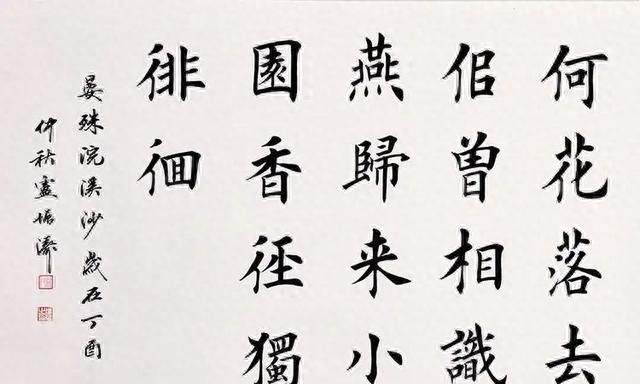 何花落去
侣曾相識
燕歸来小
園香徑獨
徘徊
晏殊浣溪沙歲在丁酉
仲秋盧振濤